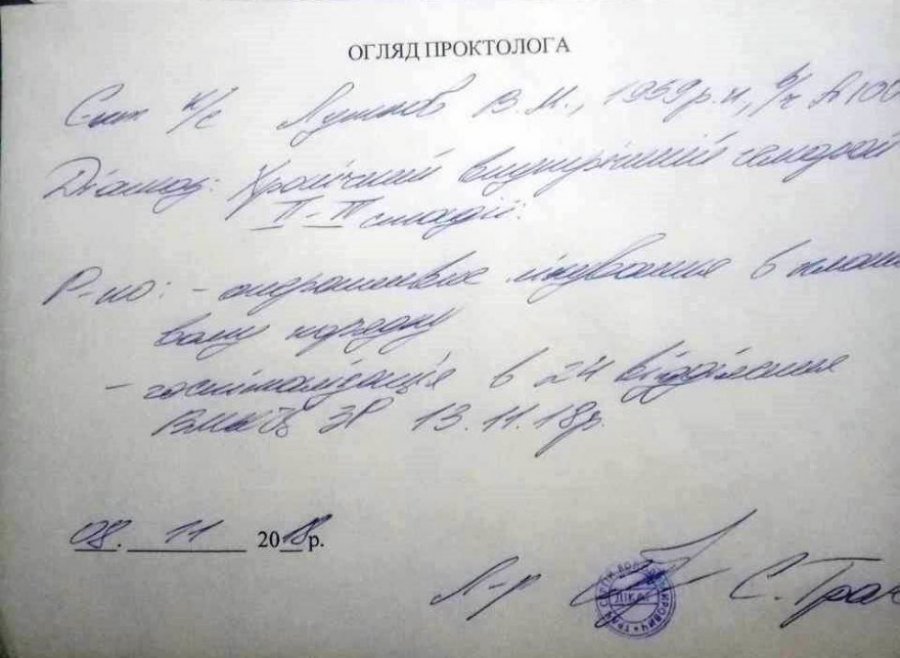 ОГЛЯД ПРОКТОЛОГА
С-нт к/с В.М., 1959 р.н., в/ч А100
Діагноз: Хронічний внутрішній геморой
II-III стадії.
Р-но: - оперативне лікування в плано
вому порядку
- госпіталізація в 24 відділення
ВМКЦ ЗР 13.11.18р.
08. 11 2018 р.
Л-р С. Трач
ЛІКАР